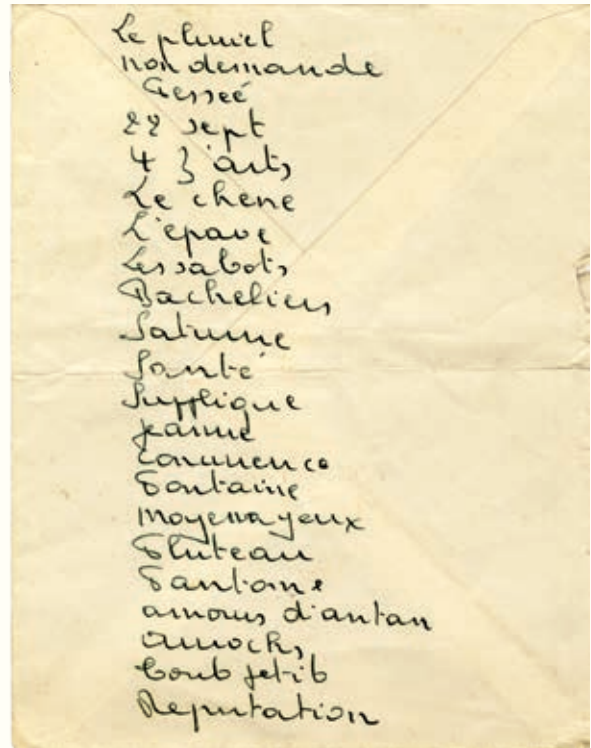 Le pluriel
non demande
Fesseé
22 sept
4 z'arts
Le chene
L'epave
Les sabots
Bacheliers
Saturne
Santé
Supplique
Jeanne
Commence
Fontaine
moyenageux
Fluteau
Fantome
amours d'antan
Reputation